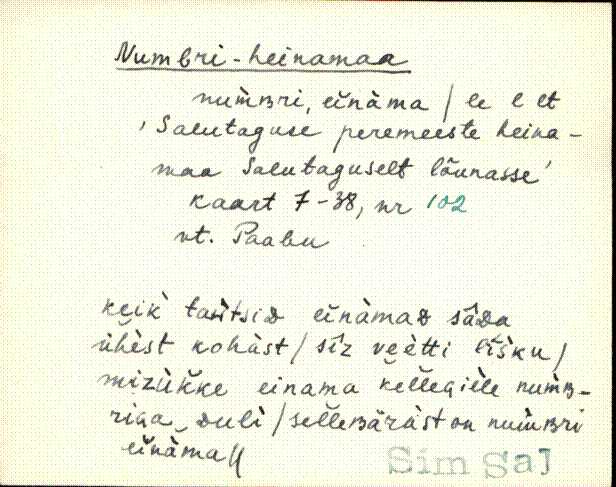 Numbri-heinamaa
nuм̀ʙri, eìnàma / le l et
'Salutaguse peremeeste heina-
maa Salutaguselt lõunasse'
kaart 7-38, nr 102
vt. Paabu
keik taʜ̀tsiᴅ eìnàmaᴅ sâᴅa
ühèst kohàst / sîz veètti lîs̀ku /
mizùkke einama kelleɢièle num̀ʙ-
riɢa ᴅulì / selleʙäràst on num̀ʙri
eìnàma //
Sim Saj